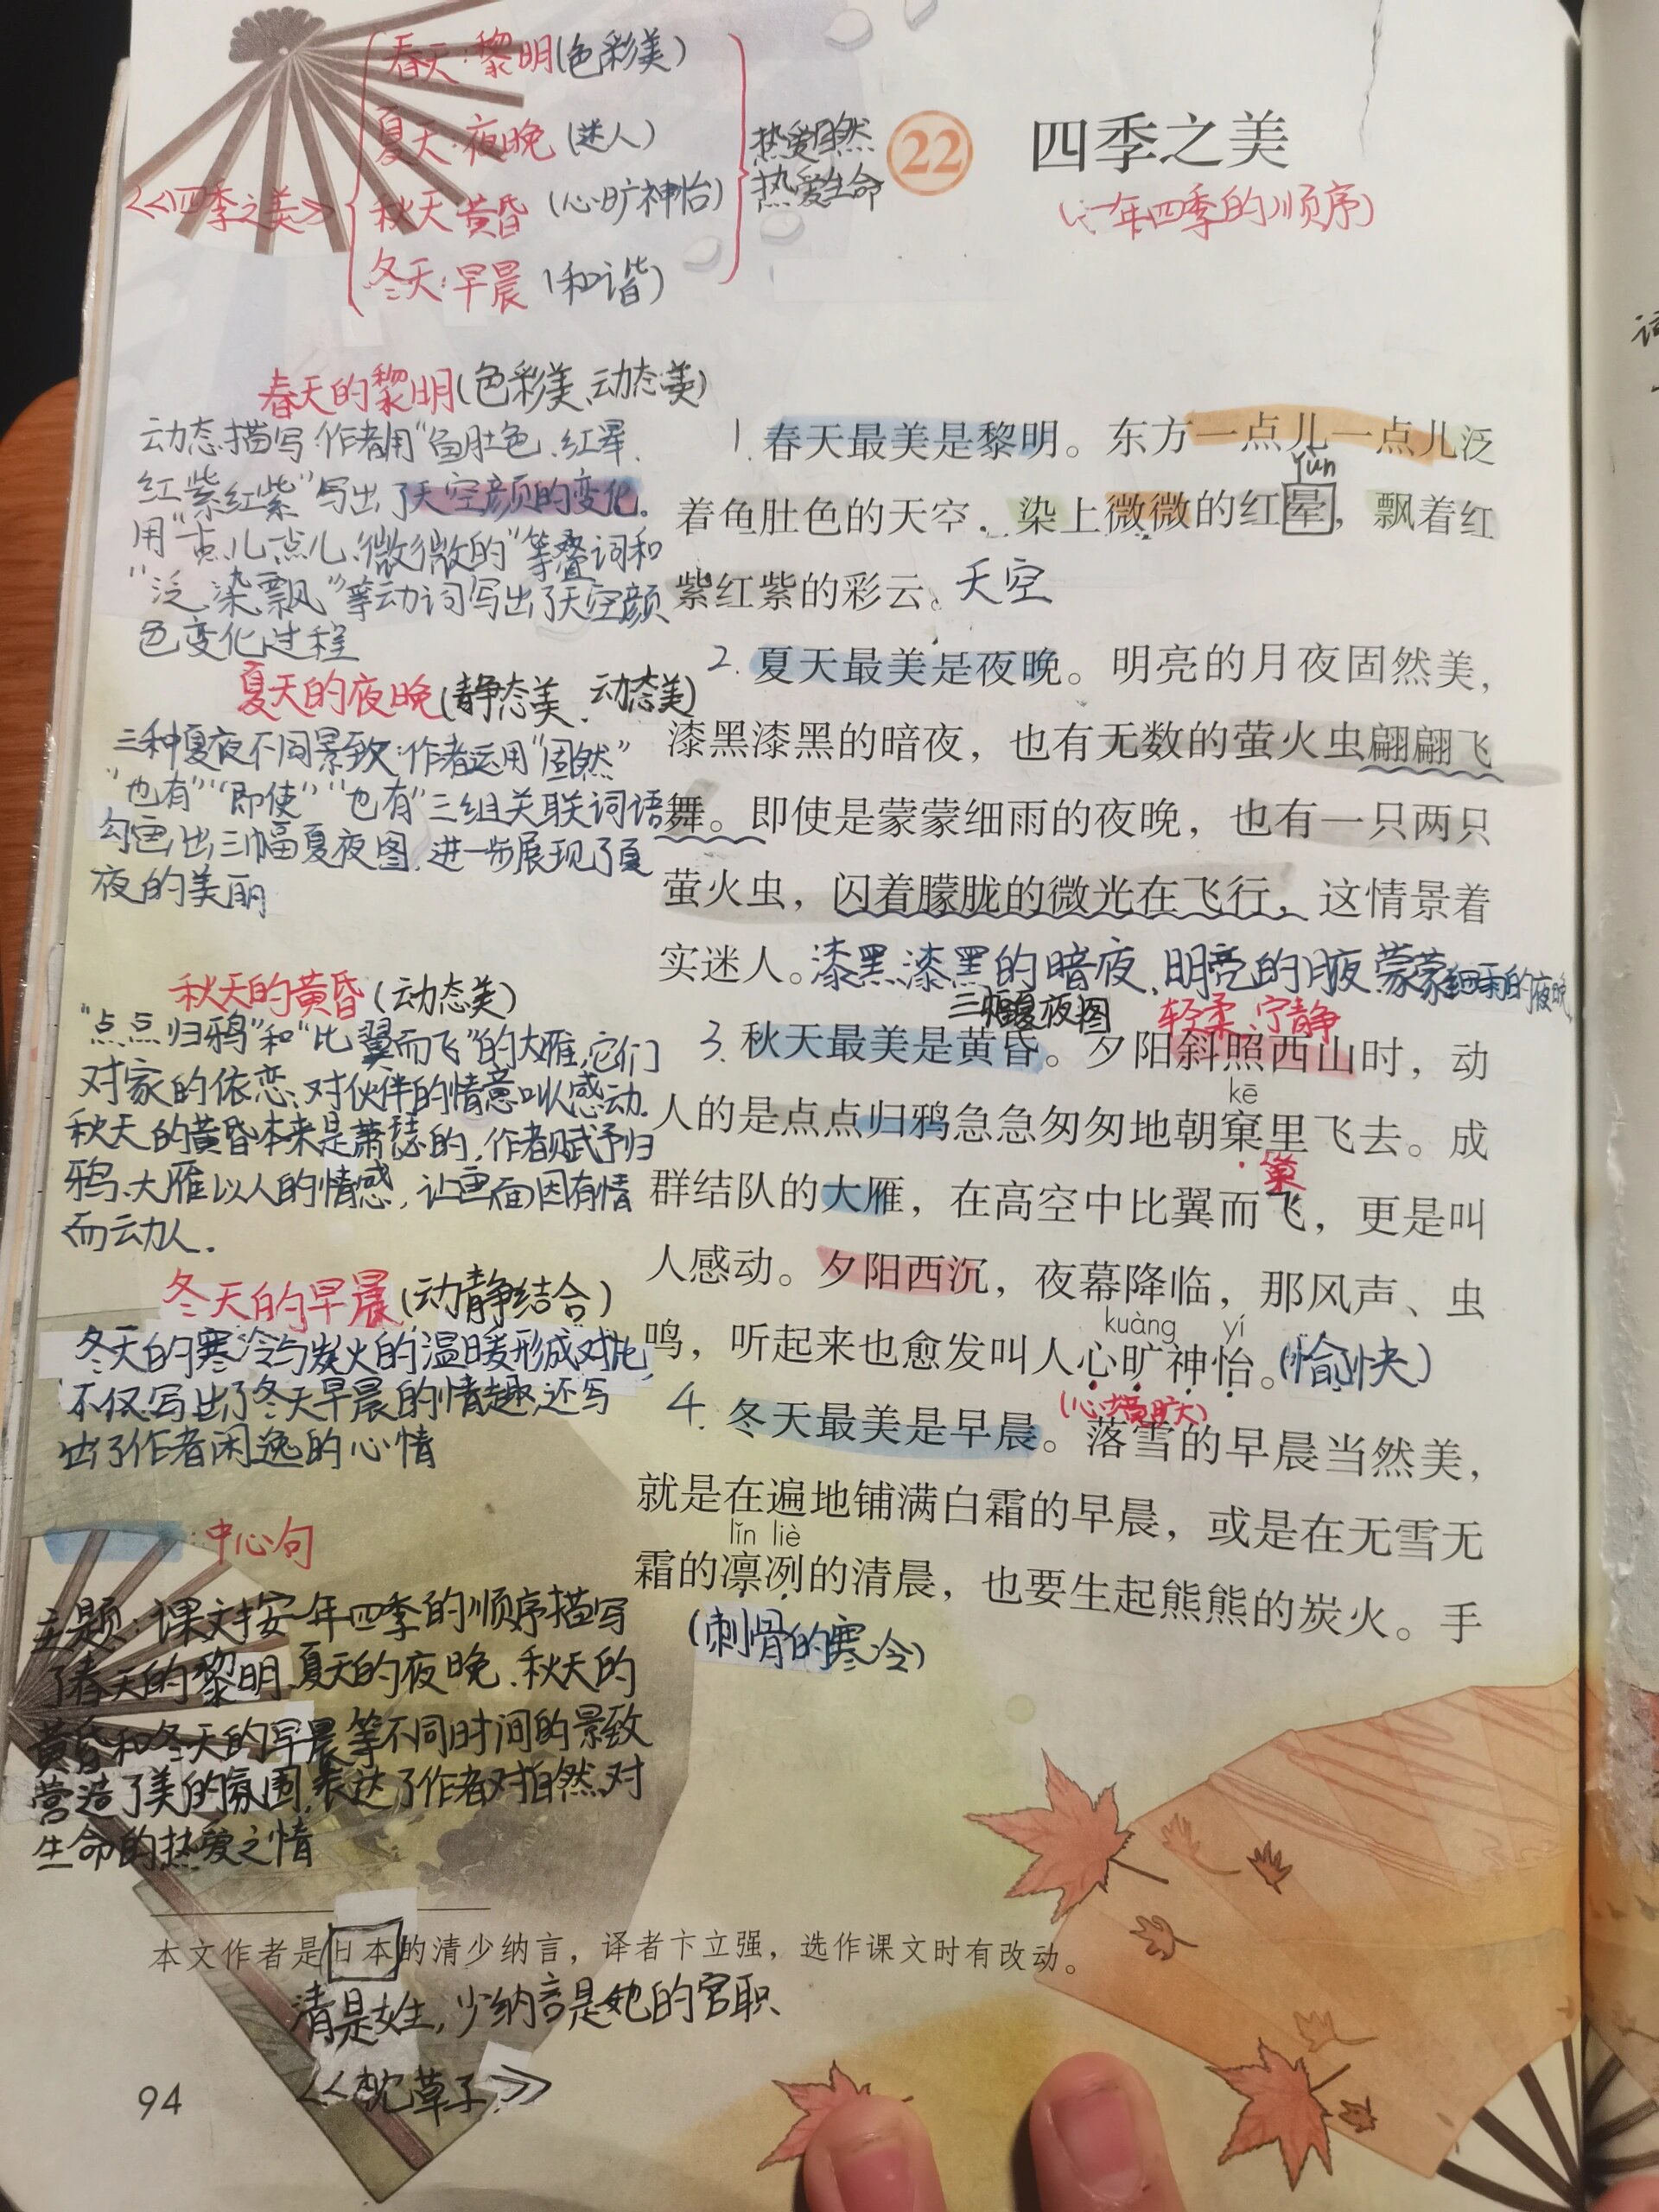 春天:黎明(色彩美)
夏天:夜晚(迷人)
《四季之美》
秋天黄昏(心旷神怡)
冬天:早晨(和谐)
热爱自然
热爱生命
22 四季之美
(一年四季的顺序)
春天的黎明(色彩美、动态美)
动态描写:作者用“鱼肚色、红晕、
红紫红紫”写出了天空颜的变化。
用“一点儿一点儿、微微的”等叠词和
“泛、染、飘”等动词写出了天空颜
色变化过程
夏天的夜晚(静态美、动态美)
三种夏夜不同景致:作者运用“固然”
“也有”“即使”“也有”三组关联词语
勾画出三幅夏夜图,进一步展现了夏
夜的美丽
秋天的黄昏(动态美)
“点点归鸦”和“比翼而飞”的大雁,它们
对家的依恋、对伙伴的情意叫人感动.
秋天的黄昏本来是萧瑟的,作者赋予归
鸦、大雁以人的情感,让画面因有情
而动人.
冬天的早晨(动静结合)
冬天的寒冷与炭火的温暖形成对比,
不仅写出了冬天早晨的情趣,还写
出了作者闲逸的心情
:中心句
主题:课文按一年四季的顺序描写
了春天的黎明、夏天的夜晚、秋天的
黄昏和冬天的早晨等不同时间的景致
营造了美的氛围,表达了作者对自然、对
生命的热爱之情
1.春天最美是黎明。东方一点儿一点儿泛
yùn
着鱼肚色的天空,染上微微的红晕,飘着红
紫红紫的彩云。天空
2.夏天最美是夜晚。明亮的月夜固然美,
漆黑漆黑的暗夜,也有无数的萤火虫翩翩飞
舞。即使是蒙蒙细雨的夜晚,也有一只两只
萤火虫,闪着朦胧的微光在飞行,这情景着
实迷人。漆黑漆黑的暗夜、明亮的月夜 蒙蒙细雨的夜晚
三幅夏夜图 轻柔、宁静
3.秋天最美是黄昏。夕阳斜照西山时,动
kē
人的是点点归鸦急急匆匆地朝窠里飞去。成
巢
群结队的大雁,在高空中比翼而飞,更是叫
人感动。夕阳西沉,夜幕降临,那风声、虫
kuàng yí
鸣,听起来也愈发叫人心旷神怡。(愉快)
(心境旷大)
4.冬天最美是早晨。落雪的早晨当然美,
就是在遍地铺满白霜的早晨,或是在无雪无
lǐn liè
霜的凛冽的清晨,也要生起熊熊的炭火。手
(刺骨的寒冷)
本文作者是日本的清少纳言,译者卞立强,选作课文时有改动。
清是姓,少纳言是她的官职
《枕草子》
94